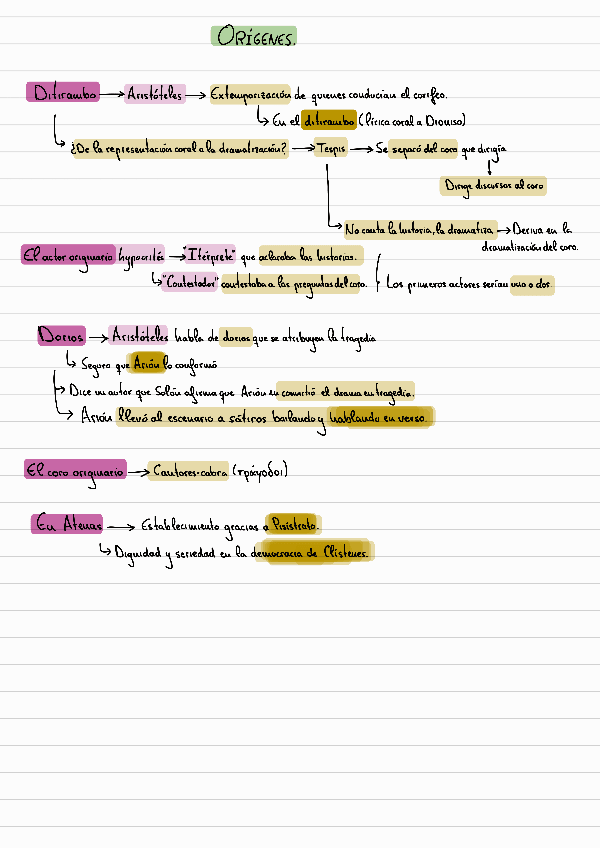 ORÍGENES.
Ditirambo → Aristóteles → Extemporización de quienes conducían el corifeo.
↳ En el ditirambo (lírica coral a Dioniso)
↳ ¿De la representación coral a la dramatización? → Tespis → Se separó del coro que dirigía
↓ Dirige discursos al coro
↳ No canta la historia, la dramatiza → Deriva en la
dramatización del coro.
El actor originario hypocrités → "Itérprete" que aclaraba las historias.
↳ "Contestador" contestaba a las preguntas del coro. Los primeros actores serían uno o dos.
Dorios → Aristóteles habla de dorios que se atribuyen la tragedia
↳ Seguro que Arión lo conformó
→ Dice un autor que Solón afirma que Arión en convirtió el drama en tragedia.
→ Arión llevó al escenario a sátiros bailando y hablando en verso.
El coro originario → Cantores-cabra (τράγοδοι)
En Atenas → Establecimiento gracias a Pisístrato.
↳ Dignidad y seriedad en la democracia de Clístenes.